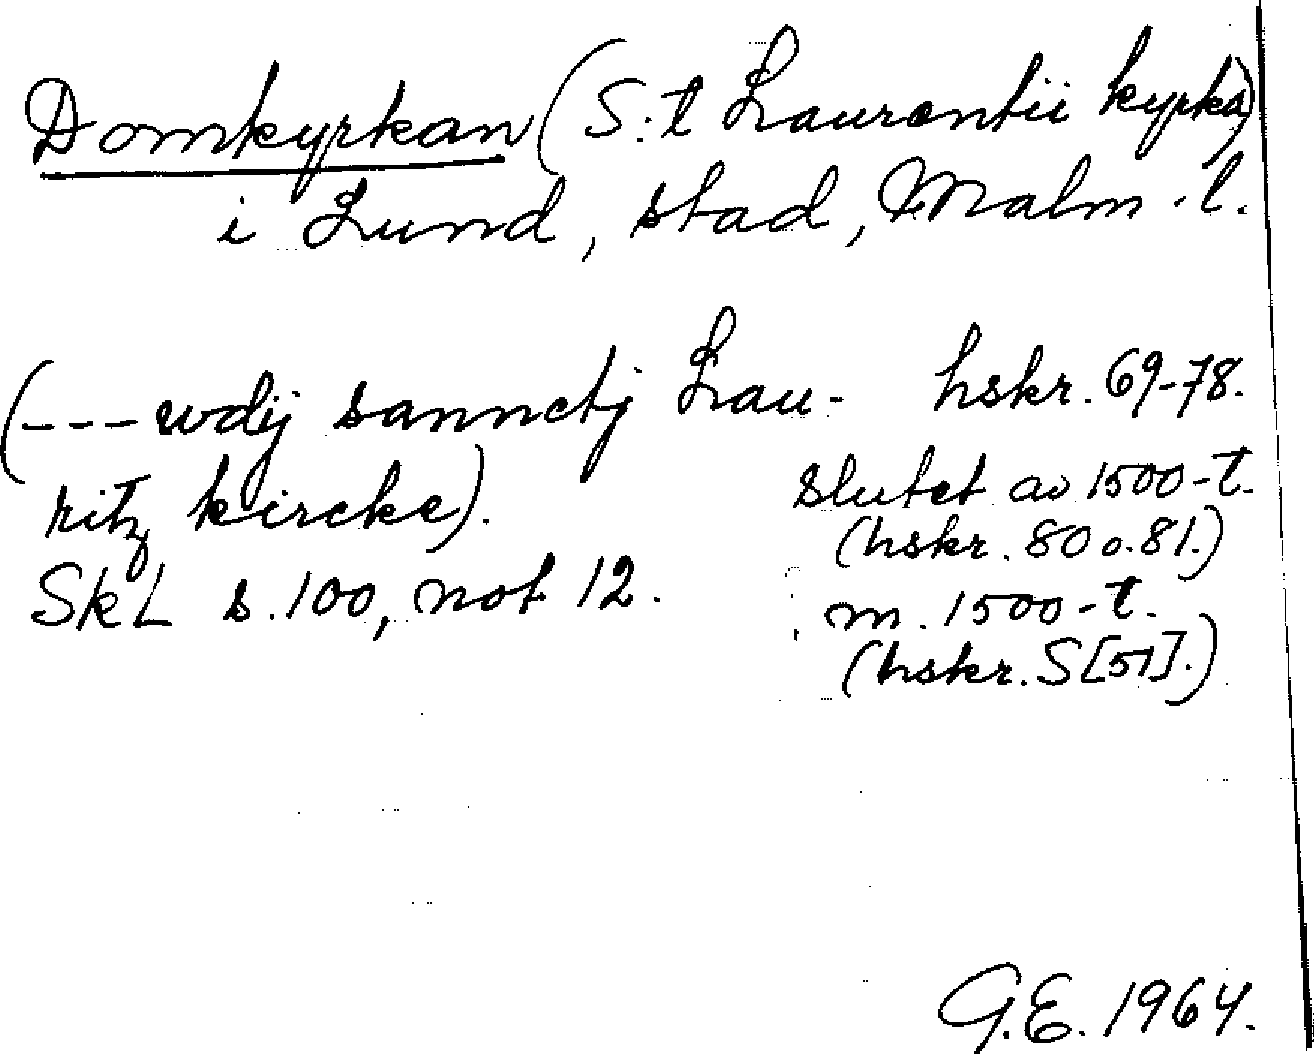 Domkyrkan (S:t Laurentii kyrka)
i Lund, stad, Malm.l.
(---wdij sannctj Lau-
ritz kircke).
SkL s.100, not 12.
hskr. 69-78.
slutet av 1500-t.
(hskr. 80 o. 81.)
m. 1500-t.
(hskr. S[51].)
G.E. 1964.